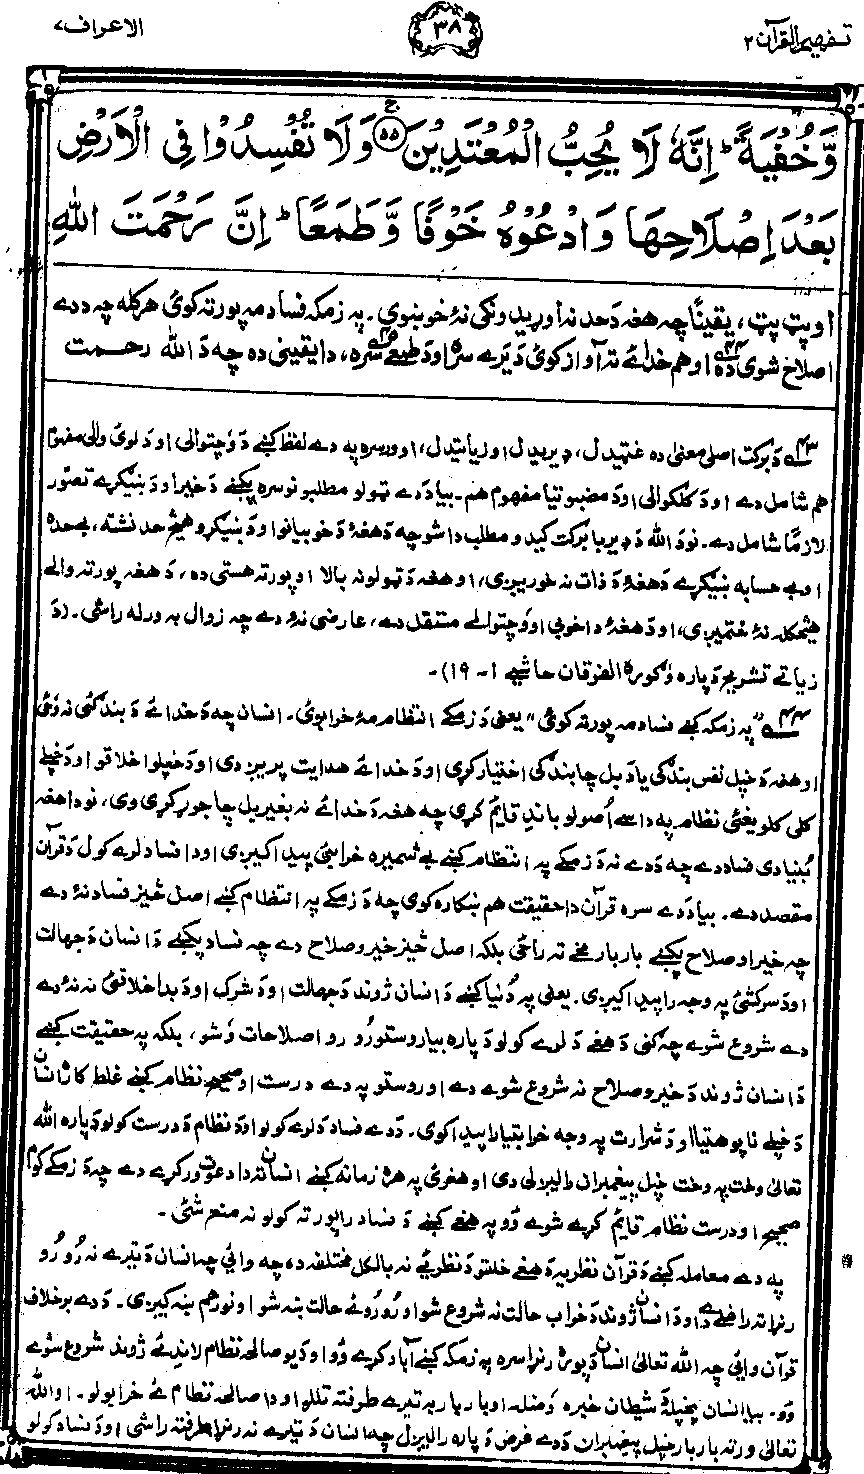 تفهيم القرآن ٢
٣٨
الاعراف ٧
وَّخُفْيَةً ؕ اِنَّهٗ لَا يُحِبُّ الْمُعْتَدِيْنَ ﴿٥٥﴾ وَلَا تُفْسِدُوْا فِى الْاَرْضِ
بَعْدَ اِصْلَاحِهَا وَادْعُوْهُ خَوْفًا وَّطَمَعًا ؕ اِنَّ رَحْمَتَ اللهِ
او پټ پټ، يقينًا چه هغه دَ حد نه اوريدونکى نهٔ خوښوي۔ په زمکه فساد مه پورته کوئ هرکله چه دده
اصلاح شوى ده ٤٤ او هم خدائے ته آواز کوئ دَ يَرے سره او دَ طمعے سره، دا يقينى ده چه دَ الله رحمت
٤٣ دَ برکت اصلى معنىٰ ده غټېدل، ډيريدل او زياتيدل، اوورسره په دے لفظ کښے دَ وچتوالى او دَ لوئ والى مفهوم
هم شامل دے او دَ کلکوالى او دَ مضبوتتيا مفهوم هم۔ بيا دَدے ټولو مطلبونو سره پکښے دَ خير او دَ ښيګړے تصوّر
لازمًا شامل دے۔ نو دَ الله دَ ډير با برکت کېدو مطلب دا شو چه دَ هغهٔ دَ خوبيانو او دَ ښيګړو هيڅ حد نشته، بے حده
او بے حسابه ښيګړے دَ هغهٔ دَ ذات نه خوريږي، او هغه دَ ټولو نه بالا او پورته هستى ده، دَ هغه پورته والے
هيڅکله نهٔ ختميږي، او دَ هغهٔ دا خوبي او وچتوالے مستقل دے، عارضى نهٔ دے چه زوال به ورله راشي۔ (دَ
زياتے تشريح دَپاره وګوره الفرقان حاشيے ١۔ ١٩)۔
٤٤ "په زمکه کښے فساد مه پورته کوئ" يعنى دَ زمکے انتظام مهٔ خرابوئ۔ انسان چه دَ خدائے دَ بندګئ نه وځى
او هغه دَ خپل نفس بندګى يا دَ بل چا بندګى اختيار کړى او دَ خدائے هدايت پريږدى او دَ خپلو اخلاقو او دَ خپلے
کلى کلويغئ نظام په داسے اُصولو باندِ قايم کړى چه هغه دَ خدائے نه بغير بل چا جوړ کړى وى، نو دا هغه
بُنيادى فساد دے چه دَدے نه دَ زمکے په انتظام کښے بے شميره خرابئ پيدا کيږى او دا فساد لرے کول دَ قرآن
مقصد دے۔ بيا دَدے سره قرآن دا حقيقت هم ښکاره کوى چه دَ زمکے په انتظام کښے اصل څيز فساد نهٔ دے
چه خير او صلاح پکښے بار بار مخے ته راځى بلکه اصل څيز خير وصلاح دے چه فساد پکښے دَ انسان دَ جهالت
او دَ سرکشئ په وجه را پيدا کيږى۔ يعنى په دُنيا کښے دَ انسان ژوند دَ جهالت او دَ شرک او دَ بداخلاقئ نه نهٔ دے
دے شروع شوے چه ګنى دَ هغے دَ لرے کولو دَپاره بيا روستو رُو رو اصلاحات وَشو، بلکه په حقيقت کښے
دَ انسان ژوند دَ خير وصلاح نه شروع شوے دے او روستو په دے درست او صحيح نظام کښے غلط کار انسان
دَ خپلے ناپوهتيا او دَ شرارت په وجه خرابتيا را پيدا کوى۔ دَدے فساد دَ لرے کولو او دَ نظام دَ درست کولو دَپاره الله
تعالىٰ وخت په وخت خپل پيغمبران راليږلى دى او هغوئ په هره زمانه کښے انسان ته دا دعوت ورکړے دے چه دَ زمکے کوم
صحيح او درست نظام قايم کړے شوے وو په هغے کښے دَ فساد را پورته کولو نه منع شئ۔
په دے معامله کښے دَ قرآن نظريه دَ هغے خلقو دَ نظريے نه بالکل مختلفه ده، چه وائى چه انسان دَ تيرے نه رُو رُو
رنړا ته راغلے دے او دَ انسان ژوند دَ خراب حالت نه شروع شو او رُو رُو ئے حالت ښه شو او نور هم ښه کيږى۔ دَدے برخلاف
قرآن وائى چه الله تعالىٰ انسان دَ پوره رنړا سره په زمکه کښے آباد کړے وو او دَ يو صالح نظام لاندے ئے ژوند شروع شوے
وو۔ بيا انسان پخپله دَ شيطان خبره ومنله او بار بار به تيرے طرف ته تللو او دا صالح نظام ئے خرابولو۔ او الله
تعالىٰ ورته بار بار خپل پيغمبران دَدے غرض دَپاره راليږل چه انسان دَ تيرے نه رنړا طرف ته راشى او دَ فساد کولو